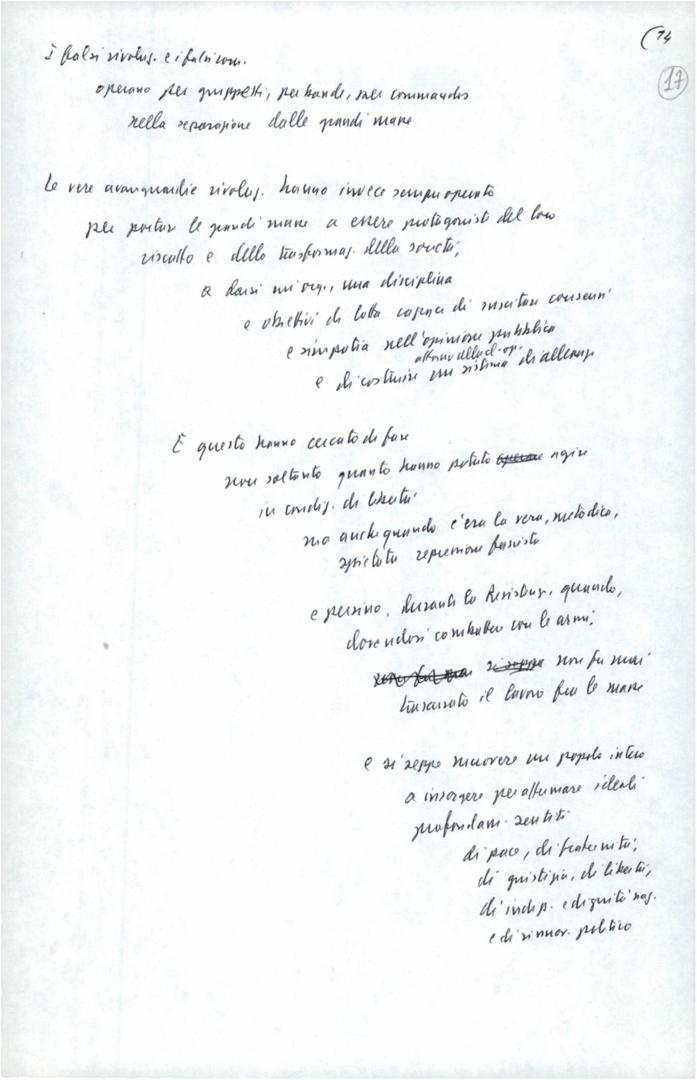 (14
17
I falsi rivoluz. e i falsi com.
operano per gruppetti, per bande, per commandos
nella separazione dalle grandi masse
Le vere avanguardie rivoluz. hanno invece sempre operato
per portare le grandi masse a essere protagoniste del loro
riscatto e della trasformaz. della società,
a darsi un'org., una disciplina
e obiettivi di lotta capaci di suscitare consensi
e simpatia nell'opinione pubblica
attorno alla cl. op.
e di costruire un sistema di alleanze
E questo hanno cercato di fare
non soltanto quando hanno potuto operare agire
in condiz. di libertà
ma anche quando c'era la vera, metodica,
spietata repressione fascista
e persino, durante la Resistenz., quando,
dovendosi combattere con le armi,
si seppe non fu mai
trascurato il lavoro fra le masse
e si seppe muovere un popolo intero
a insorgere per affermare ideali
profondam. sentiti
di pace, di fraternità,
di giustizia, di libertà,
di indip. e dignità naz.
e di rinnov. politico